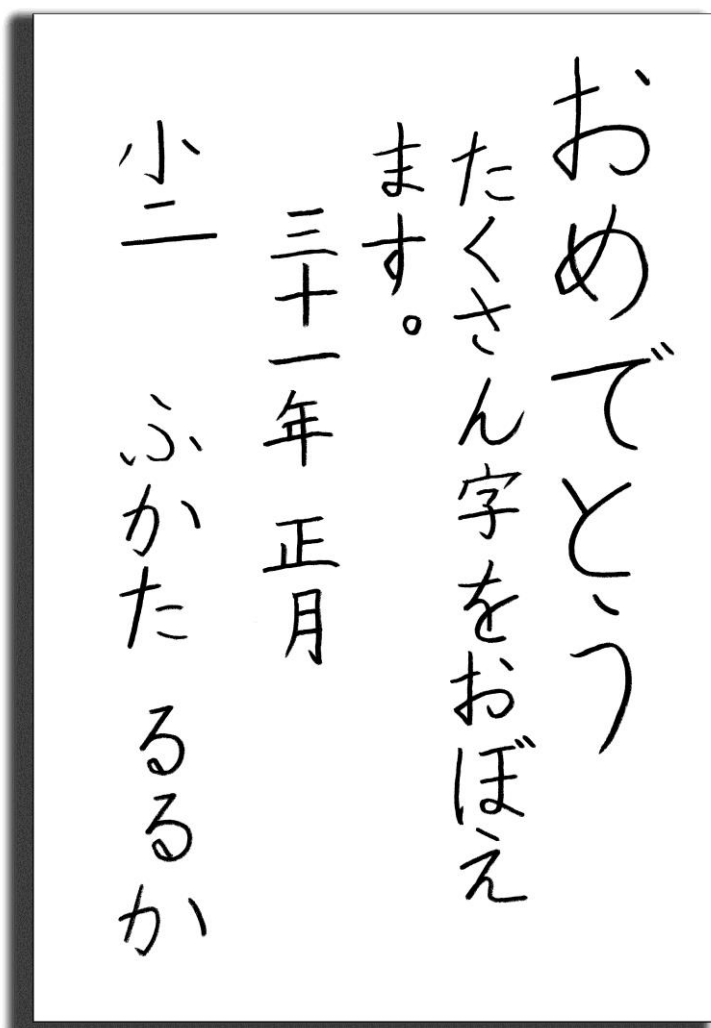 おめでとう
たくさん字をおぼえ
ます。
三十一年 正月
小二 ふかた るるか